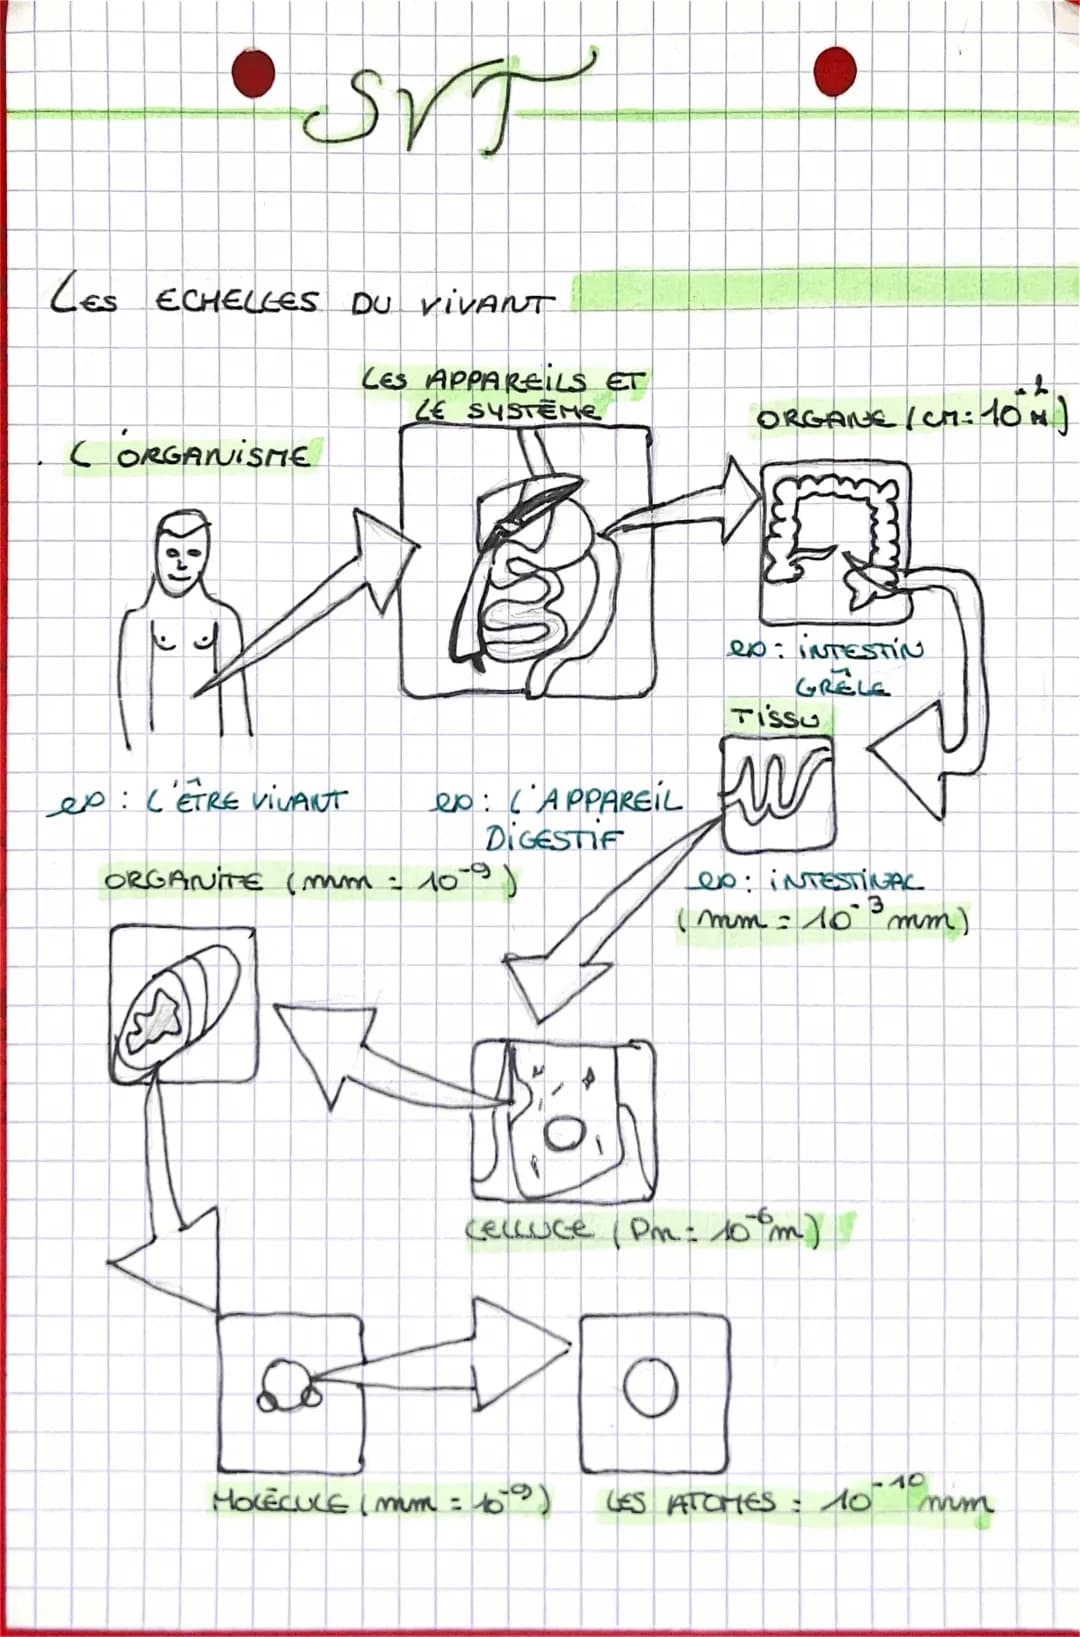 SVT
LES ECHELLES DU VIVANT
LES APPAREILS ET
LE SYSTÈME
ORGANE (cm = 10⁻² M)
L'ORGANISME
ex : INTESTIN
GRÊLE
TISSU
ex : L'ÊTRE VIVANT
ex : L'APPAREIL
DIGESTIF
ORGANITE (mm = 10⁻⁹)
ex : INTESTINAL
(mm = 10⁻³ mm)
CELLULE (Pm = 10⁻⁶ m)
MOLÉCULE (mm = 10⁻⁹)
LES ATOMES : 10⁻¹⁰ mm